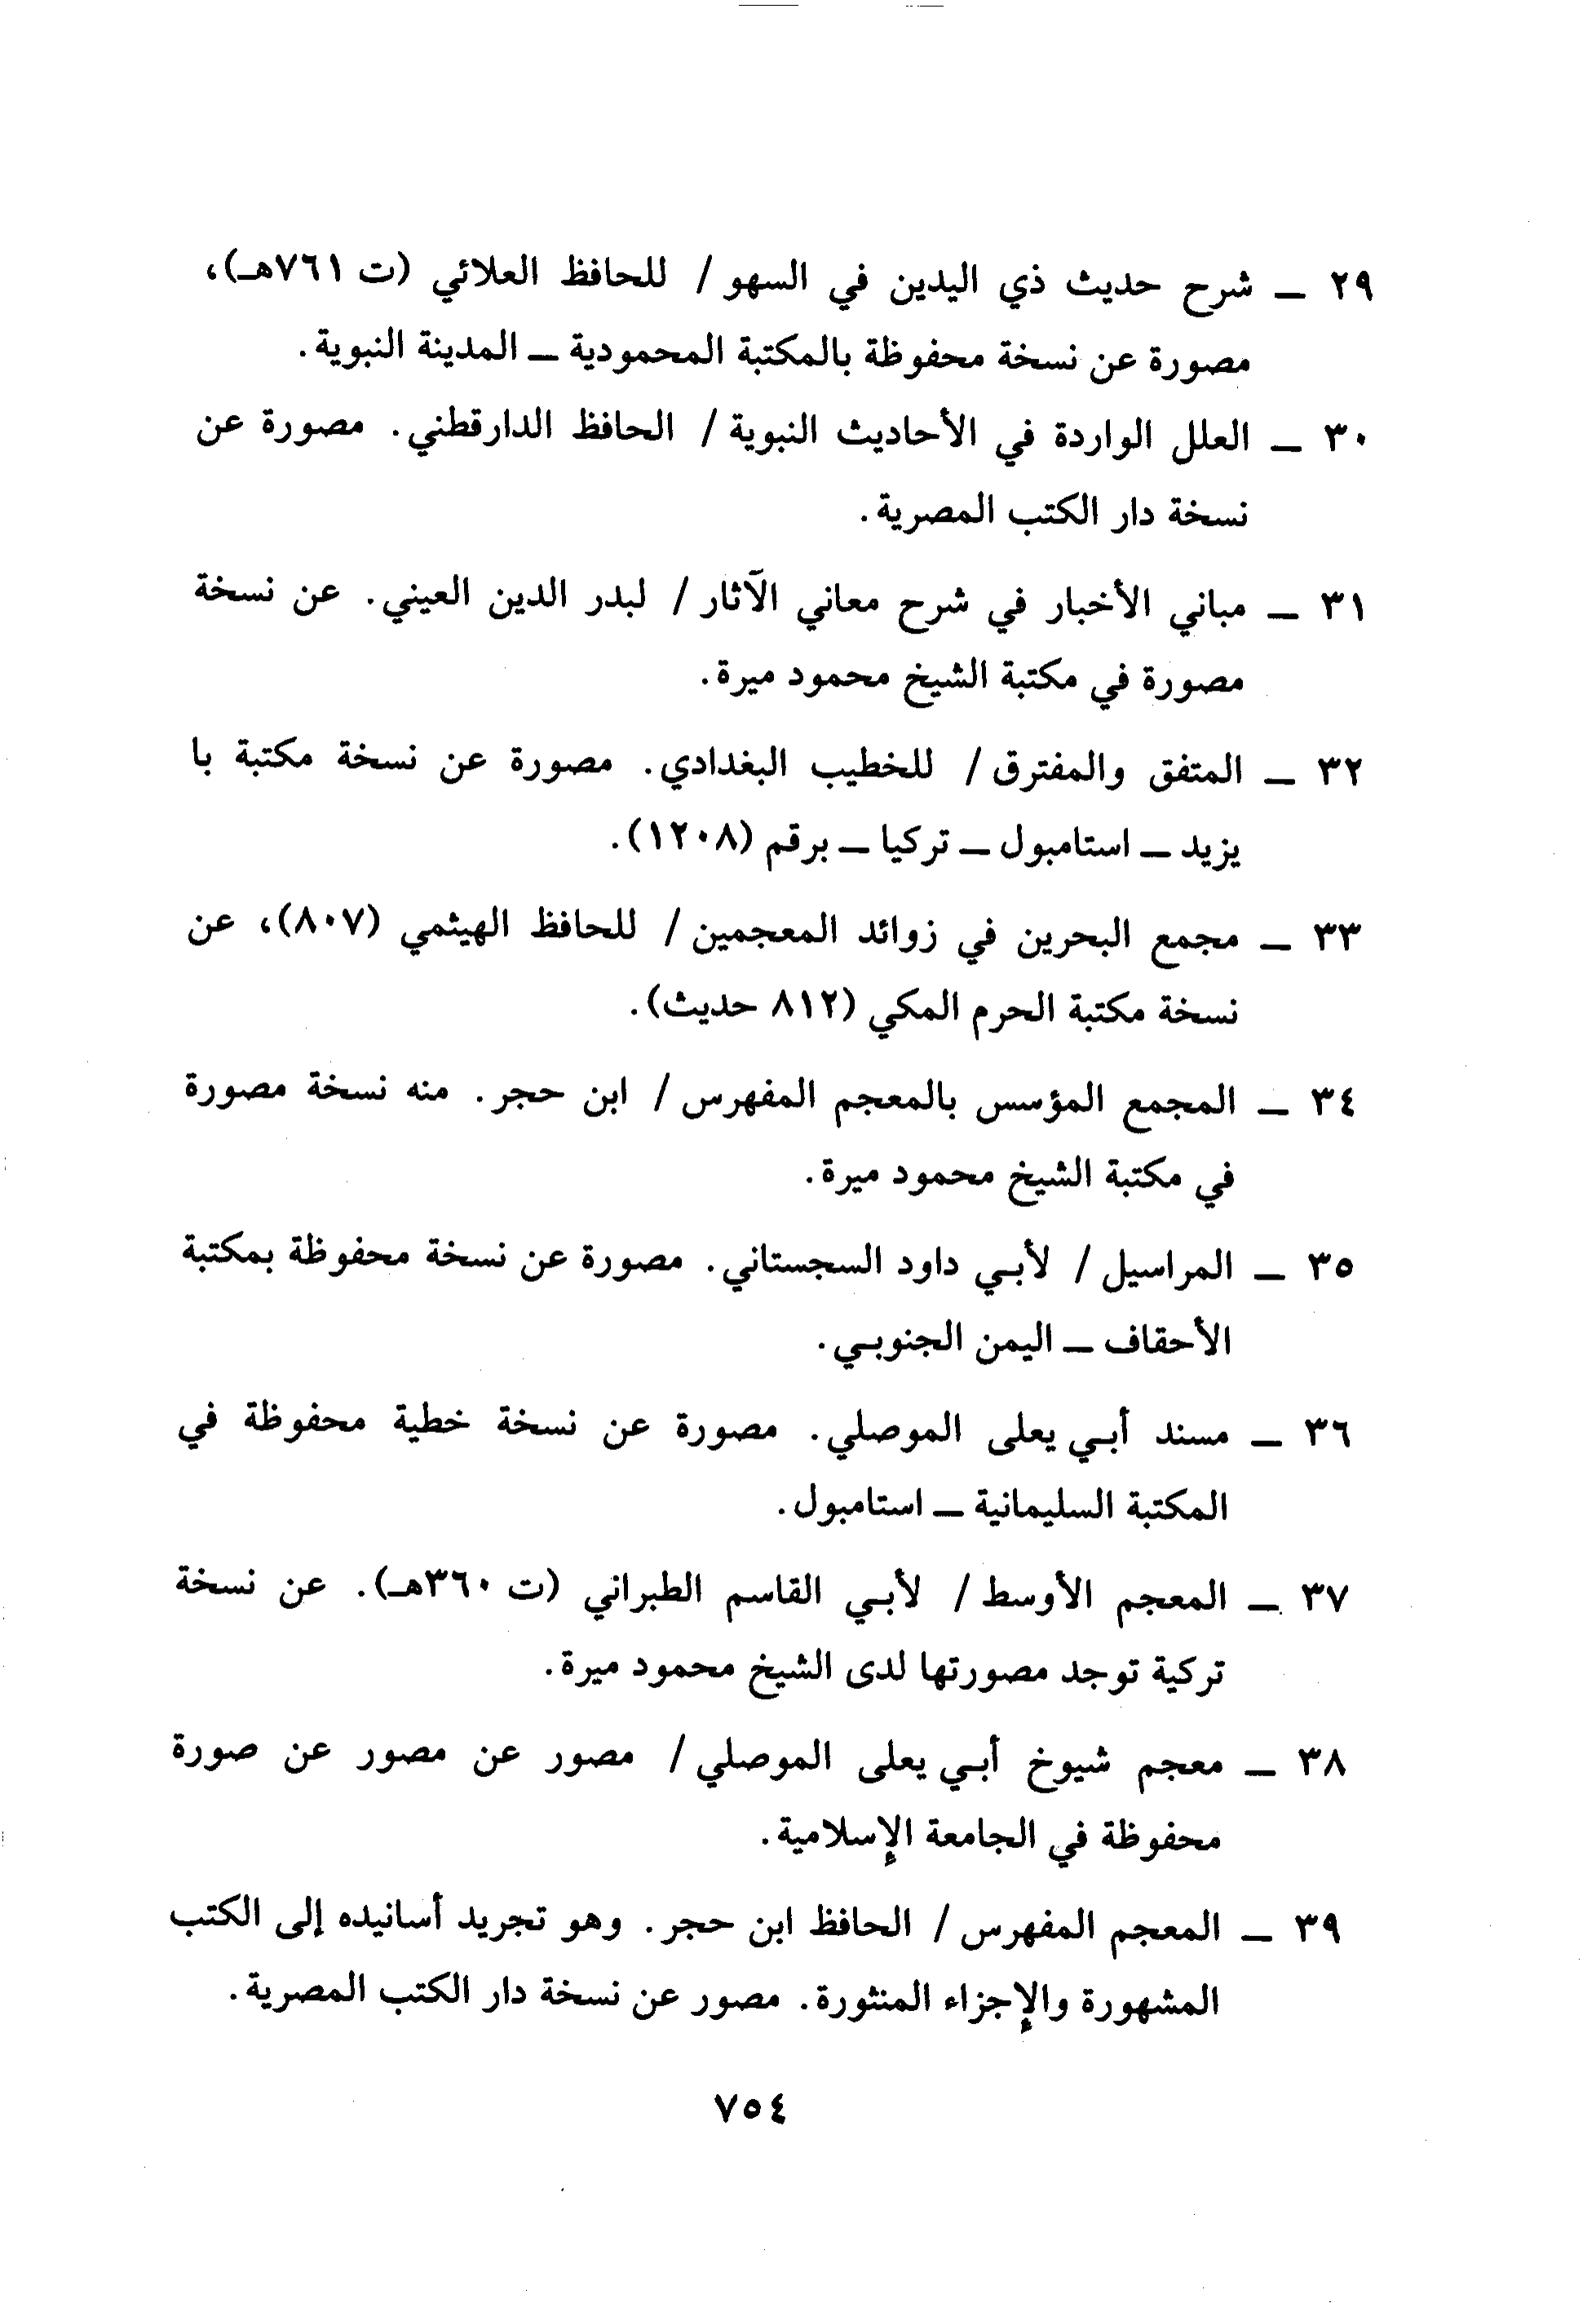 ٢٩ ــ شرح حديث ذي اليدين في السهو / للحافظ العلائي (ت ٧٦١هـ)،
مصورة عن نسخة محفوظة بالمكتبة المحمودية ــ المدينة النبوية.
٣٠ ــ العلل الواردة في الأحاديث النبوية / الحافظ الدارقطني. مصورة عن
نسخة دار الكتب المصرية.
٣١ ــ مباني الأخبار في شرح معاني الآثار / لبدر الدين العيني. عن نسخة
مصورة في مكتبة الشيخ محمود ميرة.
٣٢ ــ المتفق والمفترق / للخطيب البغدادي. مصورة عن نسخة مكتبة با
يزيد ــ استامبول ــ تركيا ــ برقم (١٢٠٨).
٣٣ ــ مجمع البحرين في زوائد المعجمين / للحافظ الهيثمي (٨٠٧)، عن
نسخة مكتبة الحرم المكي (٨١٢ حديث).
٣٤ ــ المجمع المؤسس بالمعجم المفهرس / ابن حجر. منه نسخة مصورة
في مكتبة الشيخ محمود ميرة.
٣٥ ــ المراسيل / لأبي داود السجستاني. مصورة عن نسخة محفوظة بمكتبة
الأحقاف ــ اليمن الجنوبي.
٣٦ ــ مسند أبي يعلى الموصلي. مصورة عن نسخة خطية محفوظة في
المكتبة السليمانية ــ استامبول.
٣٧ ــ المعجم الأوسط / لأبي القاسم الطبراني (ت ٣٦٠هـ). عن نسخة
تركية توجد مصورتها لدى الشيخ محمود ميرة.
٣٨ ــ معجم شيوخ أبي يعلى الموصلي / مصور عن مصور عن صورة
محفوظة في الجامعة الإسلامية.
٣٩ ــ المعجم المفهرس / الحافظ ابن حجر. وهو تجريد أسانيده إلى الكتب
المشهورة والإجزاء المنثورة. مصور عن نسخة دار الكتب المصرية.
٧٥٤